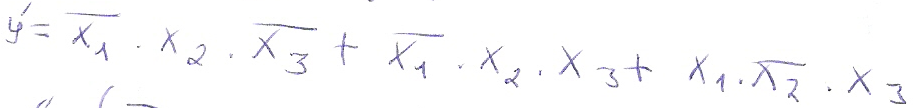 y' = x̅₁ · x₂ · x̅₃ + x̅₁ · x₂ · x₃ + x₁ · x̅₂ · x₃